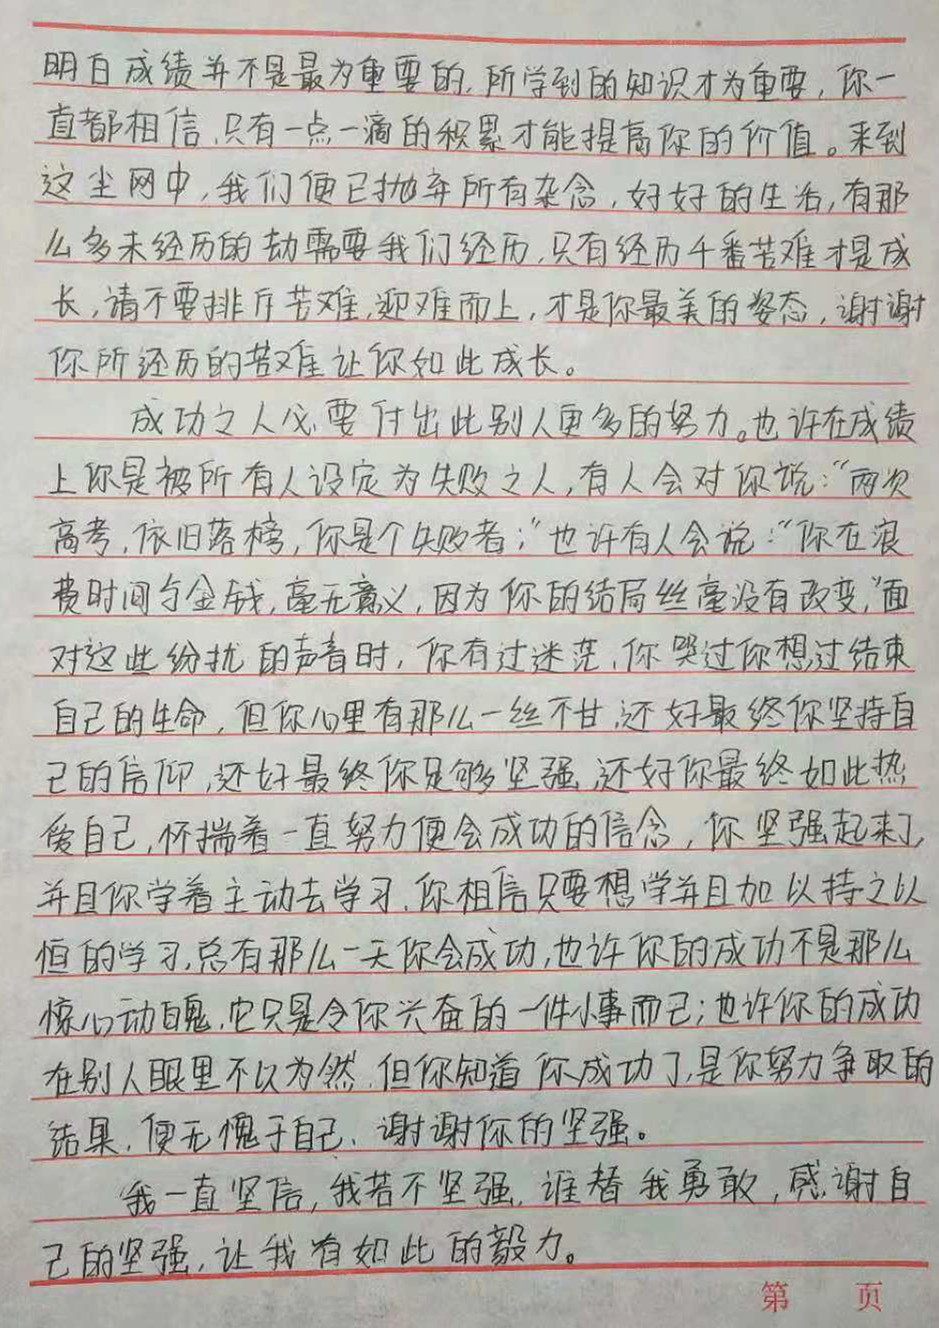 明白成绩并不是最为重要的,所学到的知识才为重要,你一
直都相信,只有一点一滴的积累才能提高你的价值。来到
这尘网中,我们便已抛弃所有杂念,好好的生活,有那
么多未经历的劫需要我们经历,只有经历千番苦难才是成
长,请不要排斥苦难,迎难而上,才是你最美的姿态,谢谢
你所经历的苦难让你如此成长。
成功之人必要付出比别人更多的努力。也许在成绩
上你是被所有人设定为失败之人,有人会对你说:“两次
高考,依旧落榜,你是个失败者;”也许有人会说:“你在浪
费时间与金钱,毫无意义,因为你的结局丝毫没有改变,”面
对这些纷扰的声音时,你有过迷茫,你哭过你想过结束
自己的生命,但你心里有那么一丝不甘,还好最终你坚持自
己的信仰,还好最终你足够坚强,还好你最终如此热
爱自己,怀揣着一直努力便会成功的信念,你坚强起来了,
并且你学着主动去学习,你相信只要想学并且加以持之以
恒的学习,总有那么一天你会成功,也许你的成功不是那么
惊心动魄,它只是令你兴奋的一件小事而已;也许你的成功
在别人眼里不以为然,但你知道你成功了,是你努力争取的
结果,便无愧于自己、谢谢你的坚强。
我一直坚信,我若不坚强,谁替我勇敢,感谢自
己的坚强,让我有如此的毅力。
第 页